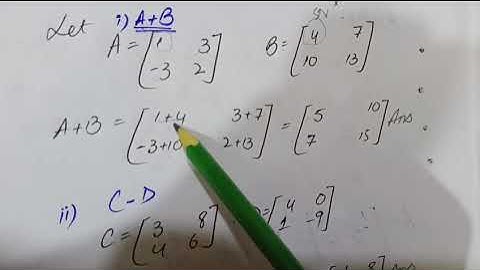 Let i) A+B
A = [1 3 -3 2] B = [4 7 10 13]
A+B = [1+4 3+7 -3+10 2+13] = [5 10 7 15] Ans
ii) C-D
C = [3 8 4 6] D = [4 0 1 -9]
8] Ans